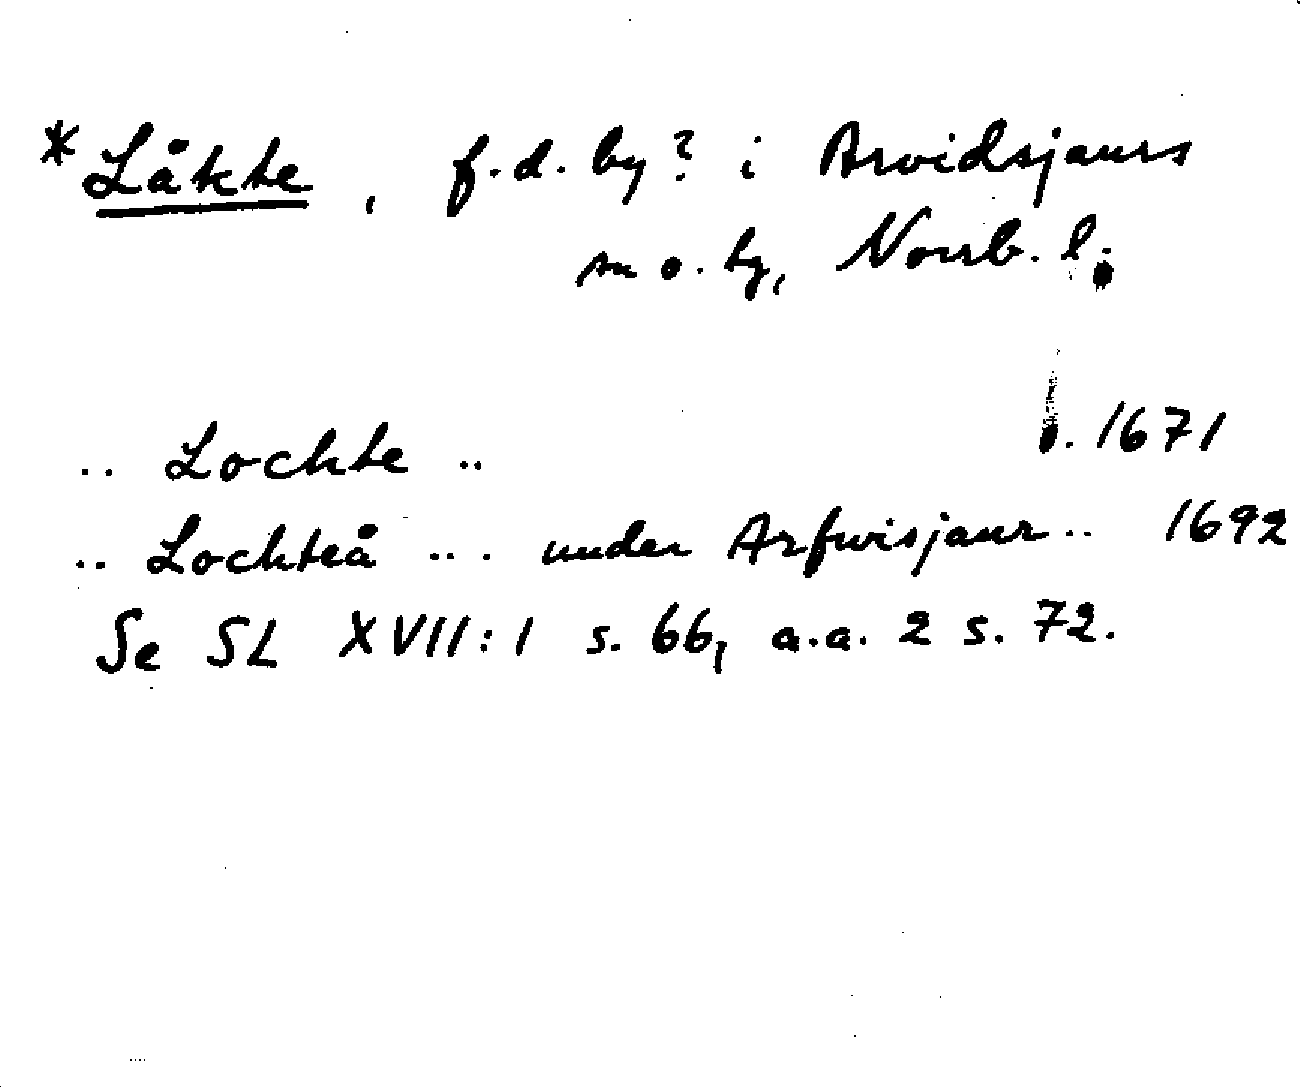 *Låkte, f.d. by? i Arvidsjaurs
sn o. tg, Norrb. l.
.. Lochte .. 1671
.. Lochteå ... under Arfwisjaur .. 1692
Se SL XVII:1 s. 66, a.a. 2 s. 72.